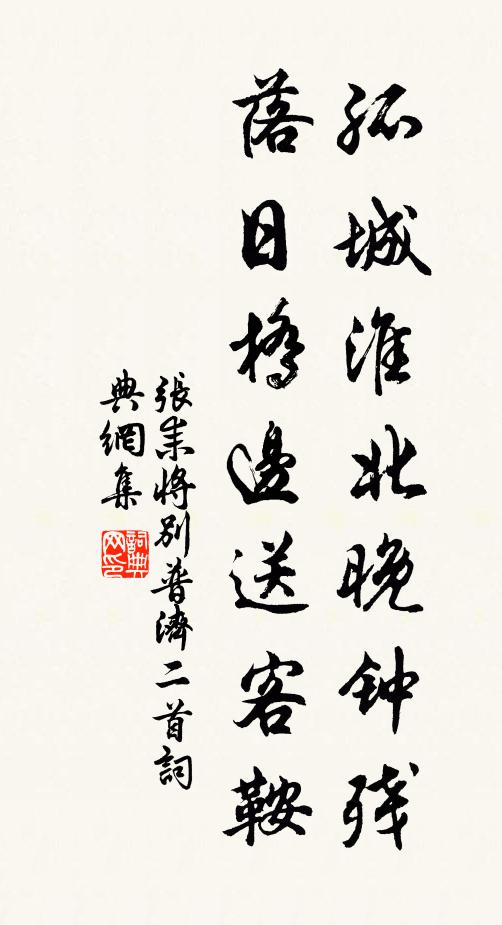 孤城淮北晚钟残
落日橋邊送客鞍
張耒将别普濟二首詞
典網集
詞典网印